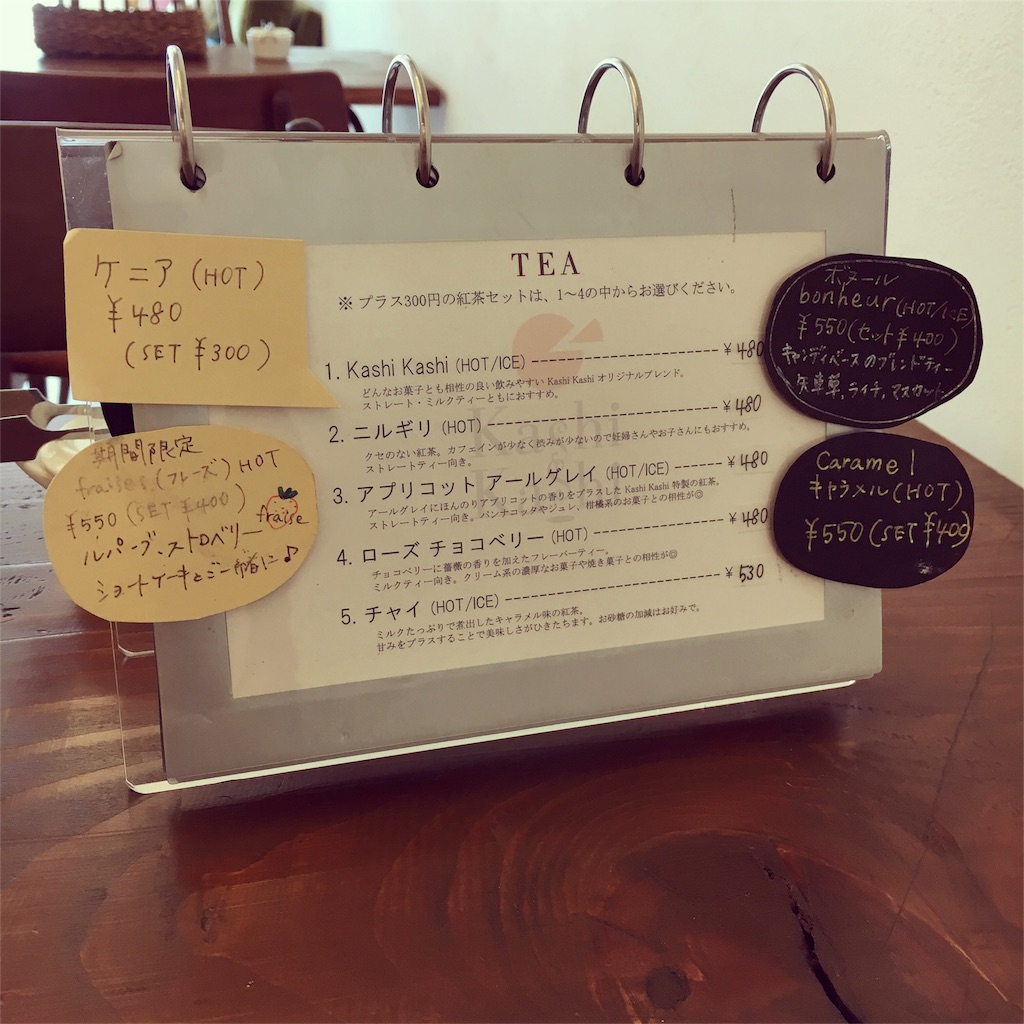 TEA
※ プラス300円の紅茶セットは、1〜4の中からお選びください。
1. Kashi Kashi (HOT/ICE) ------------------- ¥480
どんなお菓子とも相性の良い飲みやすい Kashi Kashi オリジナルブレンド。
ストレート・ミルクティーともにおすすめ。
2. ニルギリ (HOT) ------------------- ¥480
クセのない紅茶。カフェインが少なく渋みが少ないので妊婦さんやお子さんにもおすすめ。
ストレートティー向き。
3. アプリコット アールグレイ (HOT/ICE) ------ ¥480
アールグレイにほんのりアプリコットの香りをプラスした Kashi Kashi 特製の紅茶。
ストレートティー向き。パンナコッタやジュレ、柑橘系のお菓子との相性が◎
4. ローズ チョコベリー (HOT) ------------- ¥480
チョコベリーに薔薇の香りを加えたフレーバーティー。
ミルクティー向き。クリーム系の濃厚なお菓子や焼き菓子との相性が◎
5. チャイ (HOT/ICE) ------------------- ¥530
ミルクたっぷりで煮出したキャラメル味の紅茶。
甘みをプラスすることで美味しさがひきたちます。お砂糖の加減はお好みで。
Kashi
Kashi
ケニア (HOT)
¥480
(SET ¥300)
期間限定
fraises (フレーズ) HOT
¥550 (SET ¥400)
fraise
ルバーブ、ストロベリー
ショートケーキとご一緒に♪
ボヌール
bonheur (HOT/ICE)
¥550 (セット ¥400)
キャンディベースのブレンドティー
矢車草, ライチ, マスカット
Caramel
キャラメル (HOT)
¥550 (SET ¥400)